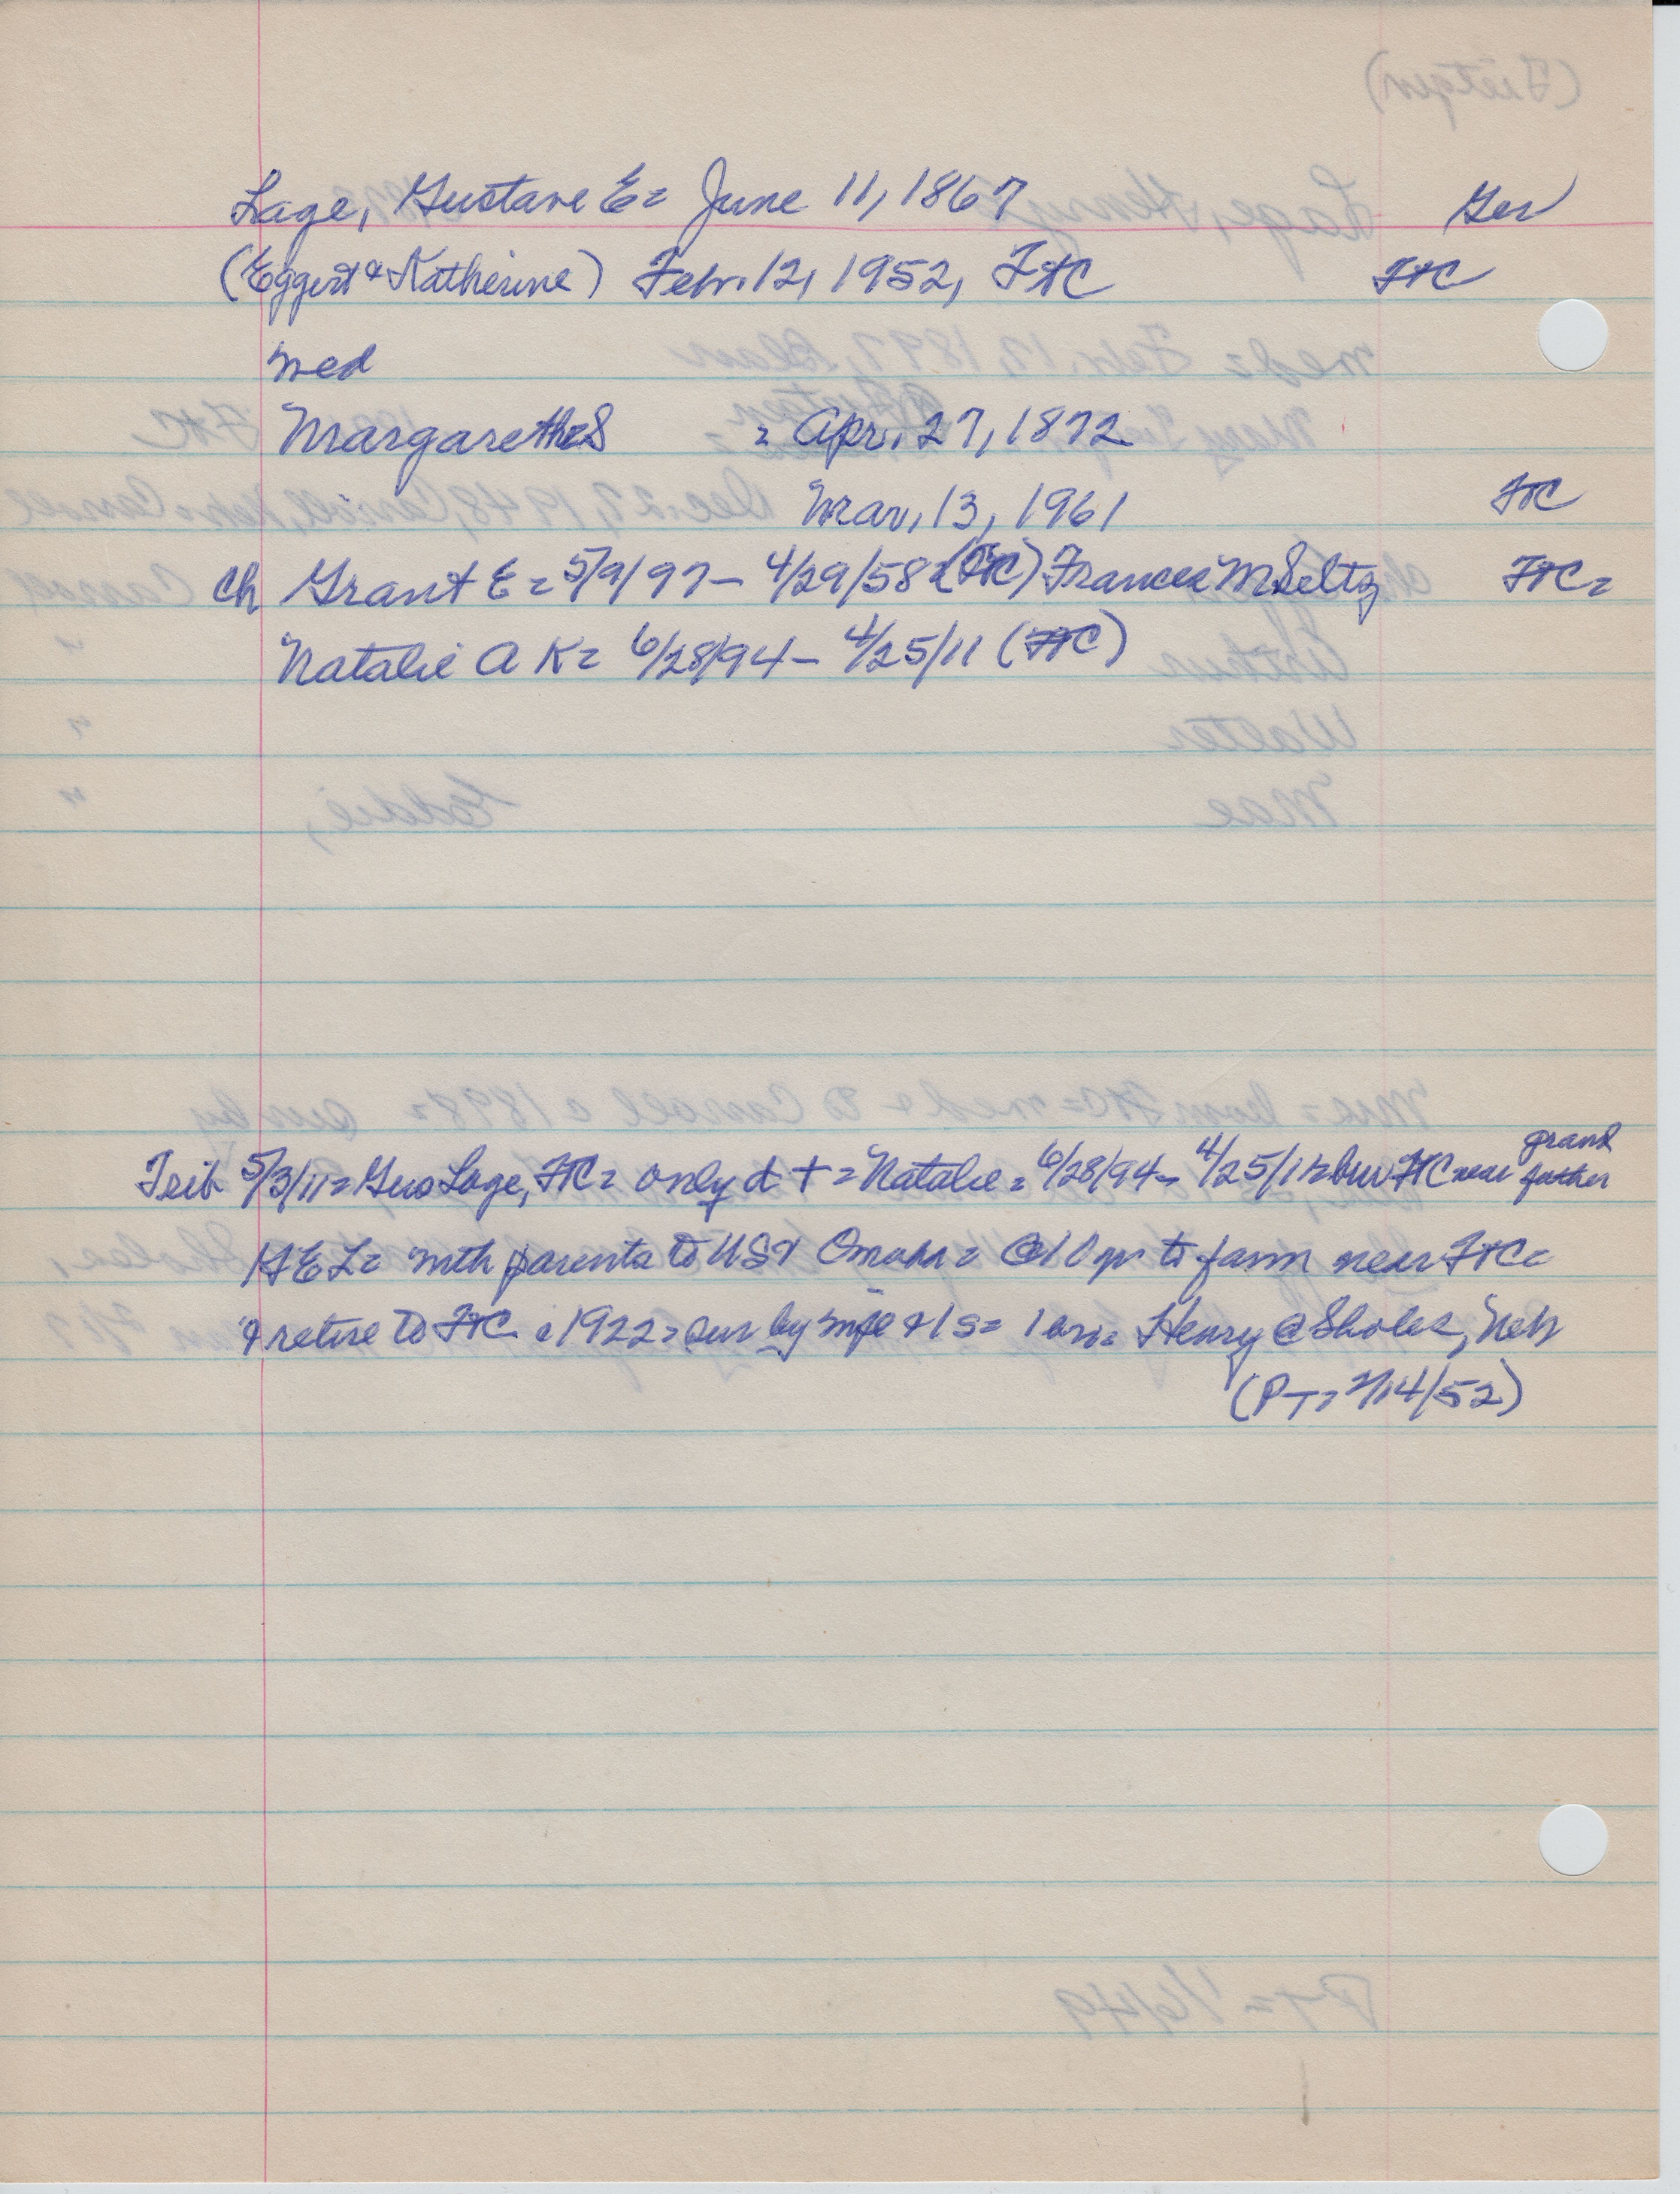 Lage, Gustave E = June 11, 1867 Ger
(Eggert & Katherine) Feb. 12, 1952, FtC FtC
med
Margarethe S = Apr. 27, 1872
Mar. 13, 1961 FtC
Ch Grant E = 5/9/97 - 4/29/58 = (FtC) Frances M Seltz FtC =
Natalie A K = 6/28/94 - 4/25/11 (FtC)
Trib 5/3/11 = Gus Lage, FtC = only d + = Natalie = 6/28/94 - 4/25/11 = bur FtC near grand father
GEL = with parents to US & Omaha = @ 10 yr to farm near FtC =
& retire to FtC c 1922 = sur by wife & 1 s = 1 bro = Henry @ Sholes, Neb
(PT = 2/14/52)